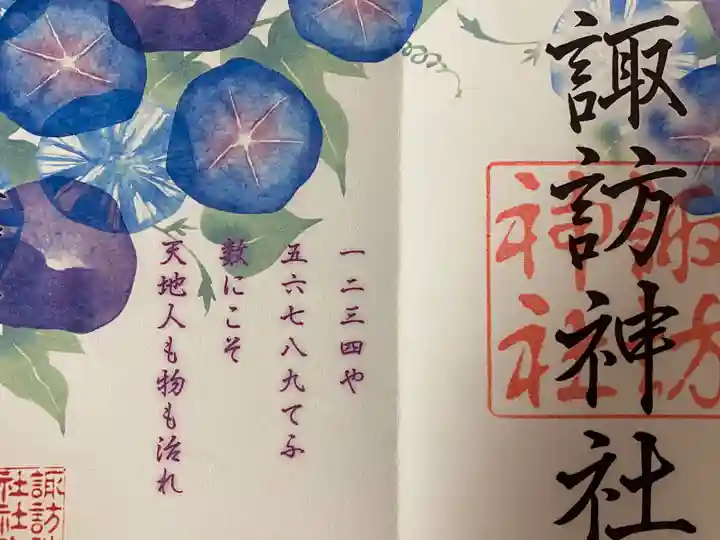 諏訪神社
諏訪
神社
一二三四や
五六七八九てふ
数にこそ
天地人も物も治れ
諏訪
社社